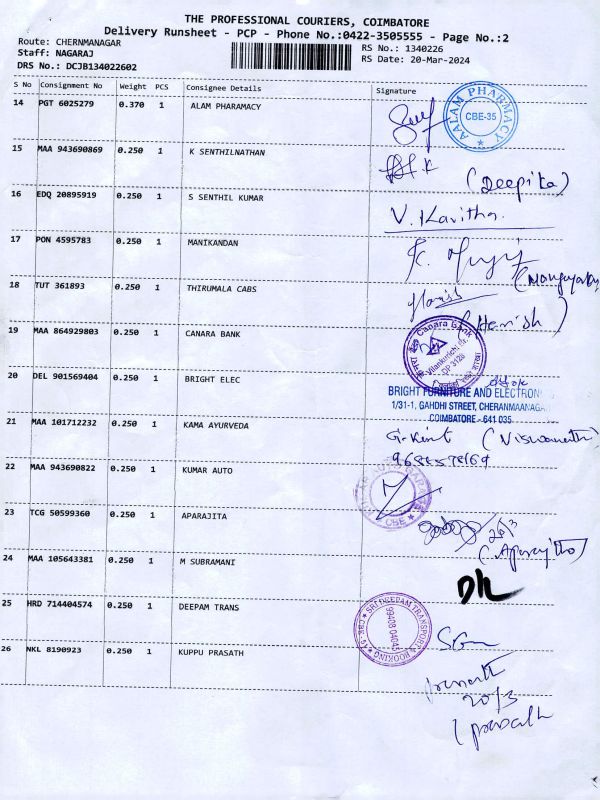 THE PROFESSIONAL COURIERS, COIMBATORE
Delivery Runsheet - PCP - Phone No.:0422-3505555 - Page No.:2
Route: CHERNMANAGAR
Staff: NAGARAJ
DRS No.: DCJB134022602
RS No.: 1340226
RS Date: 20-Mar-2024
S No Consignment No Weight PCS Consignee Details Signature
14 PGT 6025279 0.370 1 ALAM PHARAMACY
AALAM PHARMACY
CBE-35
15 MAA 943690869 0.250 1 K SENTHILNATHAN
(Deepika)
16 EDQ 20895919 0.250 1 S SENTHIL KUMAR
V. Kavitha.
17 PON 4595783 0.250 1 MANIKANDAN
18 TUT 361893 0.250 1 THIRUMALA CABS
Harish
(Harish)
19 MAA 864929803 0.250 1 CANARA BANK
Canara Bank
Vilankurichi Br.
DP 3128
20 DEL 901569404 0.250 1 BRIGHT ELEC
BRIGHT FURNITURE AND ELECTRON
1/31-1, GAHDHI STREET, CHERANMAANAGA
COIMBATORE - 641 035
21 MAA 101712232 0.250 1 KAMA AYURVEDA
(Viswanath)
22 MAA 943690822 0.250 1 KUMAR AUTO
CBE
23 TCG 50599360 0.250 1 APARAJITA
20/3
(Aparajitha)
24 MAA 105643381 0.250 1 M SUBRAMANI
25 HRD 714404574 0.250 1 DEEPAM TRANS
SRI DEEPAM TRANSPORT
99408 04045
BOOKING
26 NKL 8190923 0.250 1 KUPPU PRASATH
20/3
(prasath